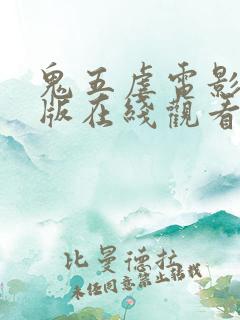 鬼五虐电影
版在綫觀看
比曼德拉
未经同意禁止转载